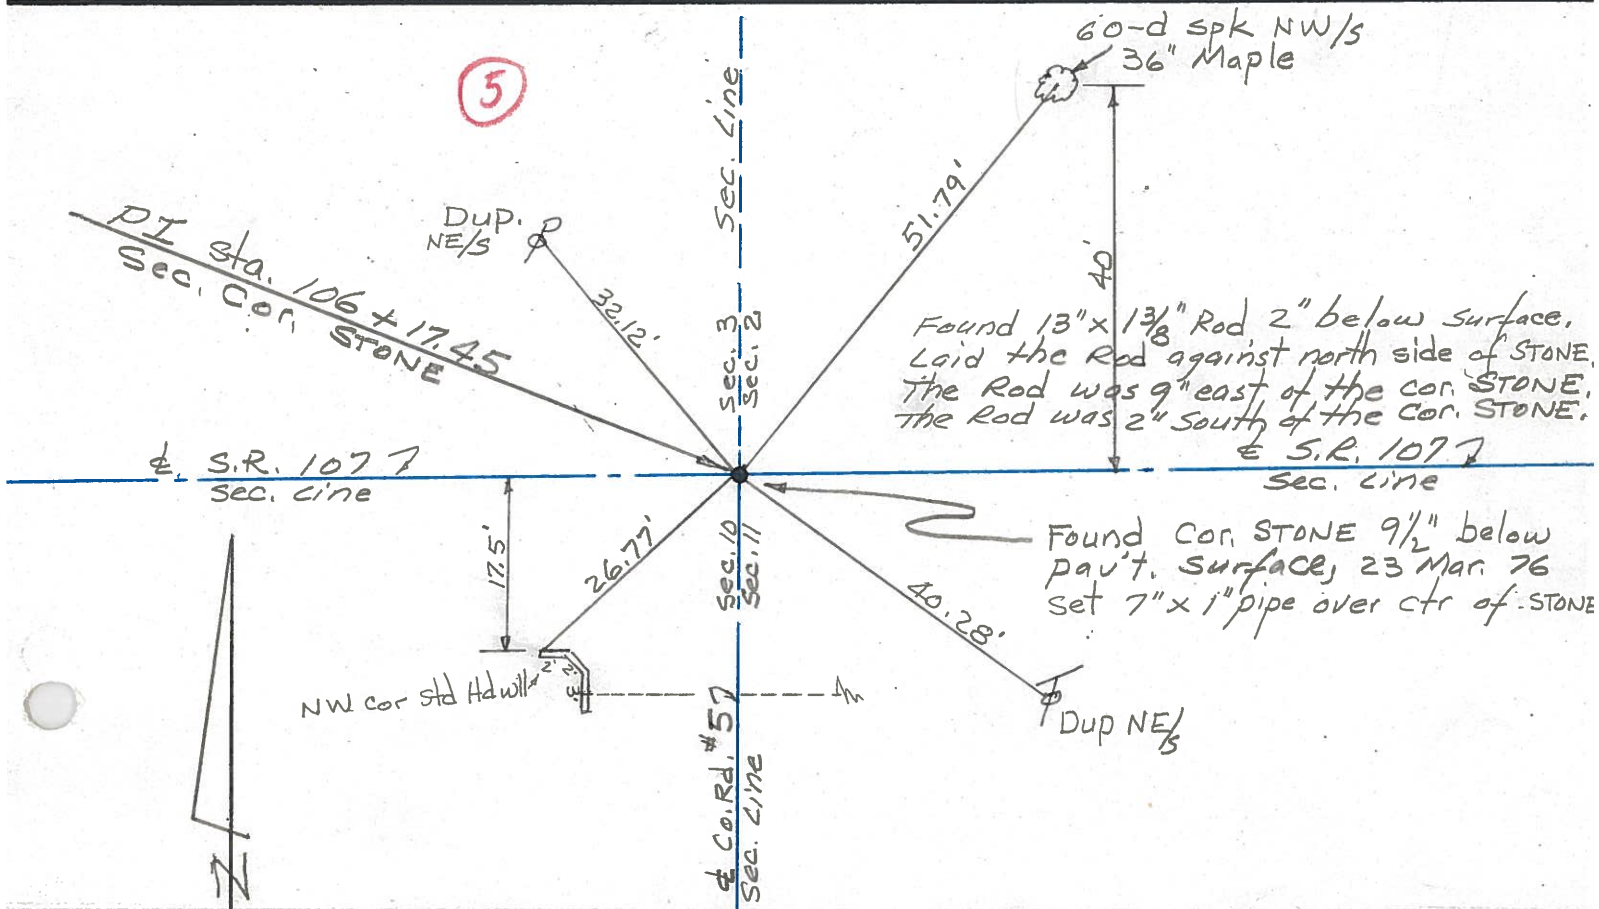 60-d spk NW/S
36" Maple
5
Sec. Line
Dup.
NE/S
PI sta. 106 + 17.45
Sec. Cor. STONE
32.12'
51.79'
40'
Sec. 3
Sec. 2
Found 13" x 1 3/8" Rod 2" below Surface.
Laid the Rod against north side of STONE.
The Rod was 9" east of the cor. STONE.
The Rod was 2" South of the Cor. STONE.
℄ S.R. 107
Sec. Line
℄ S.R. 107
Sec. Line
17.5'
26.77'
Sec. 10
Sec. 11
40.28'
Found Cor. STONE 9 1/2" below
pav't. surface, 23 Mar. 76
set 7" x 1" pipe over ctr of STONE
NW cor std Hdwll
2' 2' 3'
Dup NE/S
℄ Co. Rd. #57
Sec. Line
N